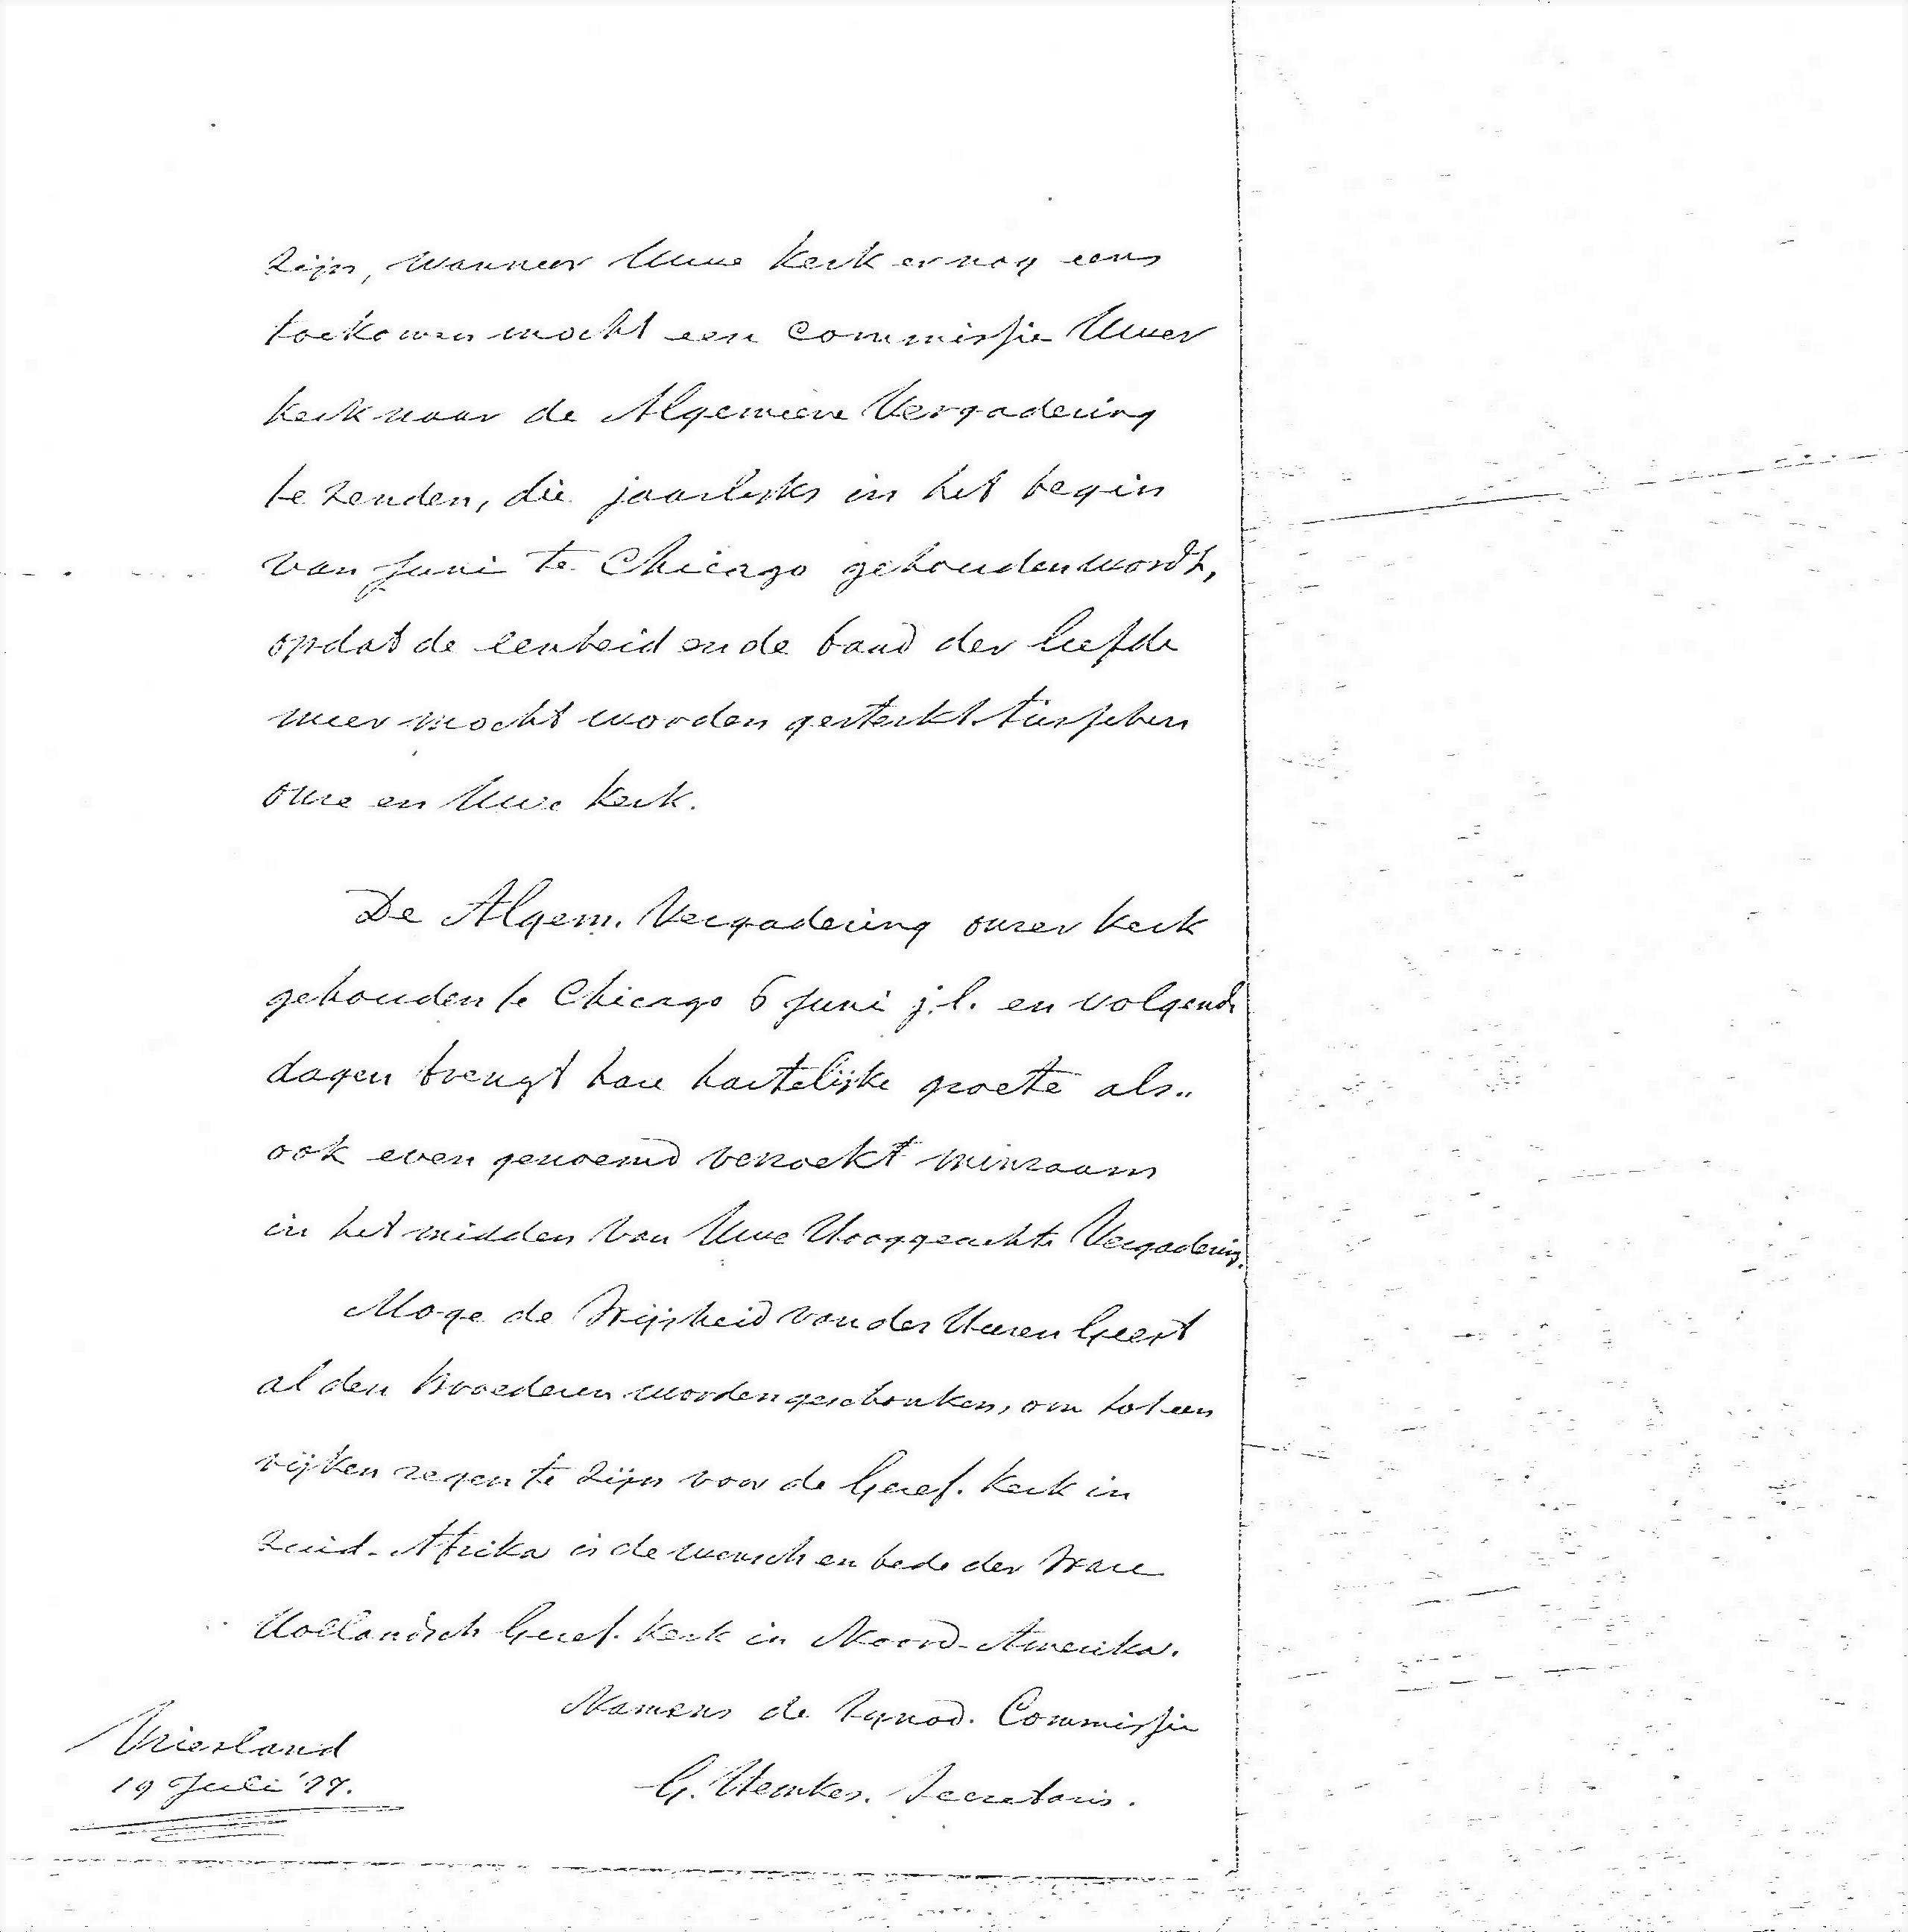 zijn, wanneer Uwe Kerk er nog eens
toekomen mocht een Commissie Uwer
Kerk naar de Algemeene Vergadering
te zenden, die jaarlijks in het begin
van Juni te Chicago gehouden wordt,
opdat de eenheid en de band der liefde
meer mocht worden gesterkt tusschen
onze en Uwe Kerk.
De Algem. Vergadering onzer Kerk
gehouden te Chicago 6 Juni j.l. en volgende
dagen brengt hare hartelijke groete als..
ook even genoemd verzoekt minzaam
in het midden van Uwe Hooggeachte Vergadering.
Moge de Wijsheid van den Heiligen Geest
al den Broederen worden geschonken, om tot een
rijken zegen te zijn voor de Geref. Kerk in
Zuid-Afrika is de wensch en bede der Ware
Hollandsch Geref. Kerk in Noord-Amerika.
Namens de Synod. Commissie
Vriesland
19 Juli '77.
G. Hemkes. Secretaris.